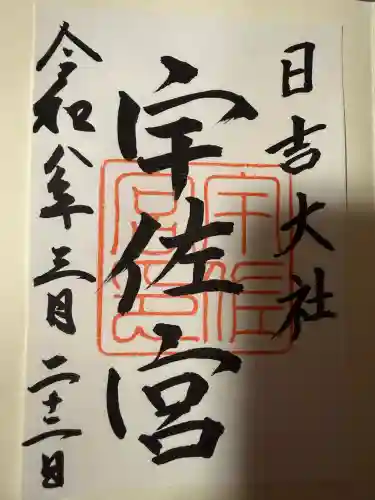 日吉大社
宇佐宮
令和八年三月二十二日